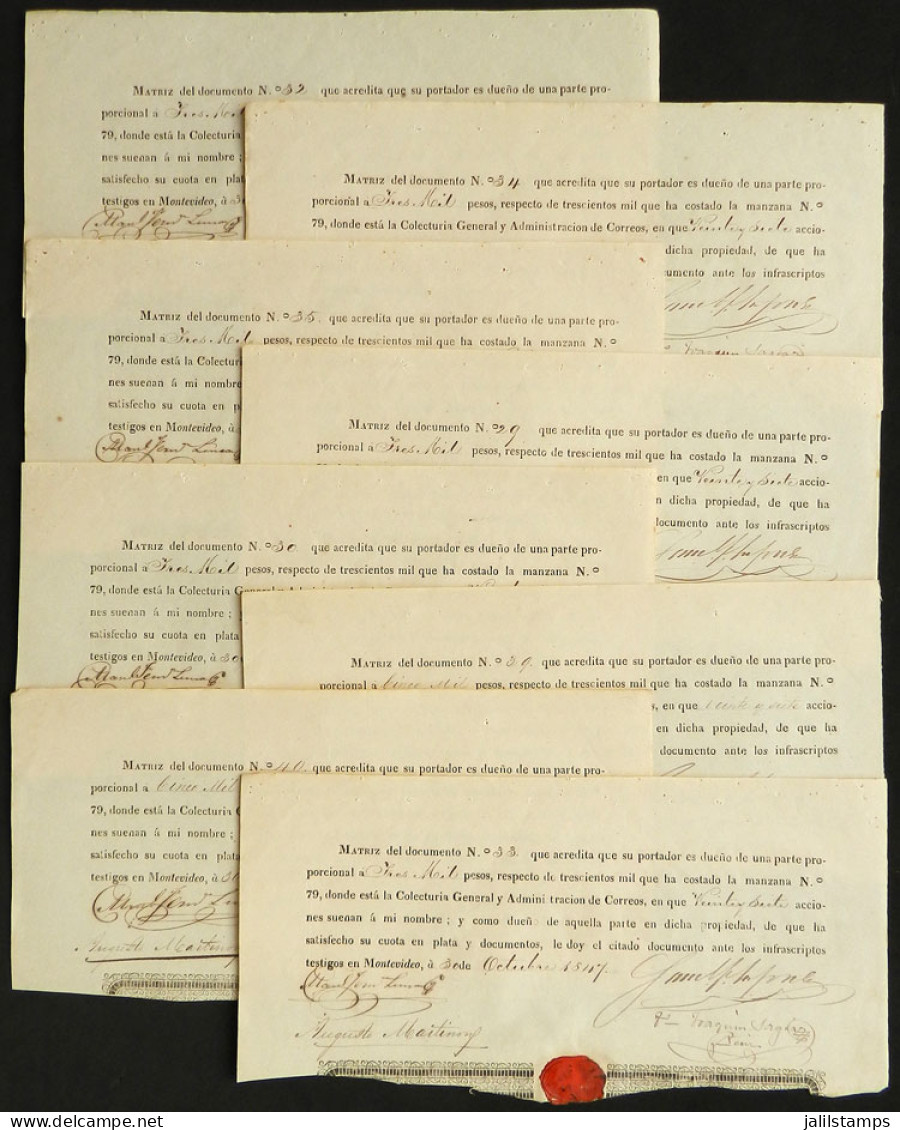 MATRIZ del documento N.º 32 que acredita que su portador es dueño de una parte pro-
porcional á Tres Mil
79, donde está la Colecturia
nes suenan á mi nombre ;
satisfecho su cuota en plat
testigos en Montevideo, á 3
MATRIZ del documento N.º 34 que acredita que su portador es dueño de una parte pro-
porcional á Tres Mil pesos, respecto de trescientos mil que ha costado la manzana N.º
79, donde está la Colecturia General y Administracion de Correos, en que Veinte y Siete accio-
dicha propiedad, de que ha
cumento ante los infrascriptos
MATRIZ del documento N.º 35. que acredita que su portador es dueño de una parte pro-
porcional á Tres Mil pesos, respecto de trescientos mil que ha costado la manzana N.º
79, donde está la Colecturia
nes suenan á mi nombre
satisfecho su cuota en p
testigos en Montevideo, á
MATRIZ del documento N.º 29 que acredita que su portador es dueño de una parte pro-
porcional á Tres Mil pesos, respecto de trescientos mil que ha costado la manzana N.º
en que Veinte y Siete accio-
n dicha propiedad, de que ha
documento ante los infrascriptos
MATRIZ del documento N.º 30. que acredita que su portador es dueño de una parte pro-
porcional á Tres Mil pesos, respecto de trescientos mil que ha costado la manzana N.º
79, donde está la Colecturia G
nes suenan á mi nombre ;
satisfecho su cuota en plata
testigos en Montevideo, á 30
MATRIZ del documento N.º 39. que acredita que su portador es dueño de una parte pro-
porcional á Cinco Mil pesos, respecto de trescientos mil que ha costado la manzana N.º
s, en que Veinte y siete accio-
en dicha propiedad, de que ha
documento ante los infrascriptos
MATRIZ del documento N.º 40. que acredita que su portador es dueño de una parte pro-
porcional á Cinco Mil
79, donde está la Colecturia
nes suenan á mi nombre ;
satisfecho su cuota en plata
testigos en Montevideo, á 30
Augusto
MATRIZ del documento N.º 33. que acredita que su portador es dueño de una parte pro-
porcional á Tres Mil pesos, respecto de trescientos mil que ha costado la manzana N.º
79, donde está la Colecturia General y Admini tracion de Correos, en que Veinte y Siete accio-
nes suenan á mi nombre ; y como dueño de aquella parte en dicha propiedad, de que ha
satisfecho su cuota en plata y documentos, le doy el citado documento ante los infrascriptos
testigos en Montevideo, á 30 de Octubre 1847
Augusto
Joaquin
jalilstamps.com